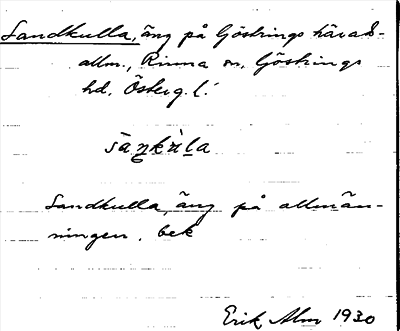 Sandkulla, äng på Göstrings härads-
allm., Rinna sn, Göstrings
hd, Österg.l.
Sandkulla, äng på allmän-
ningen. bek
Erik Alm 1930